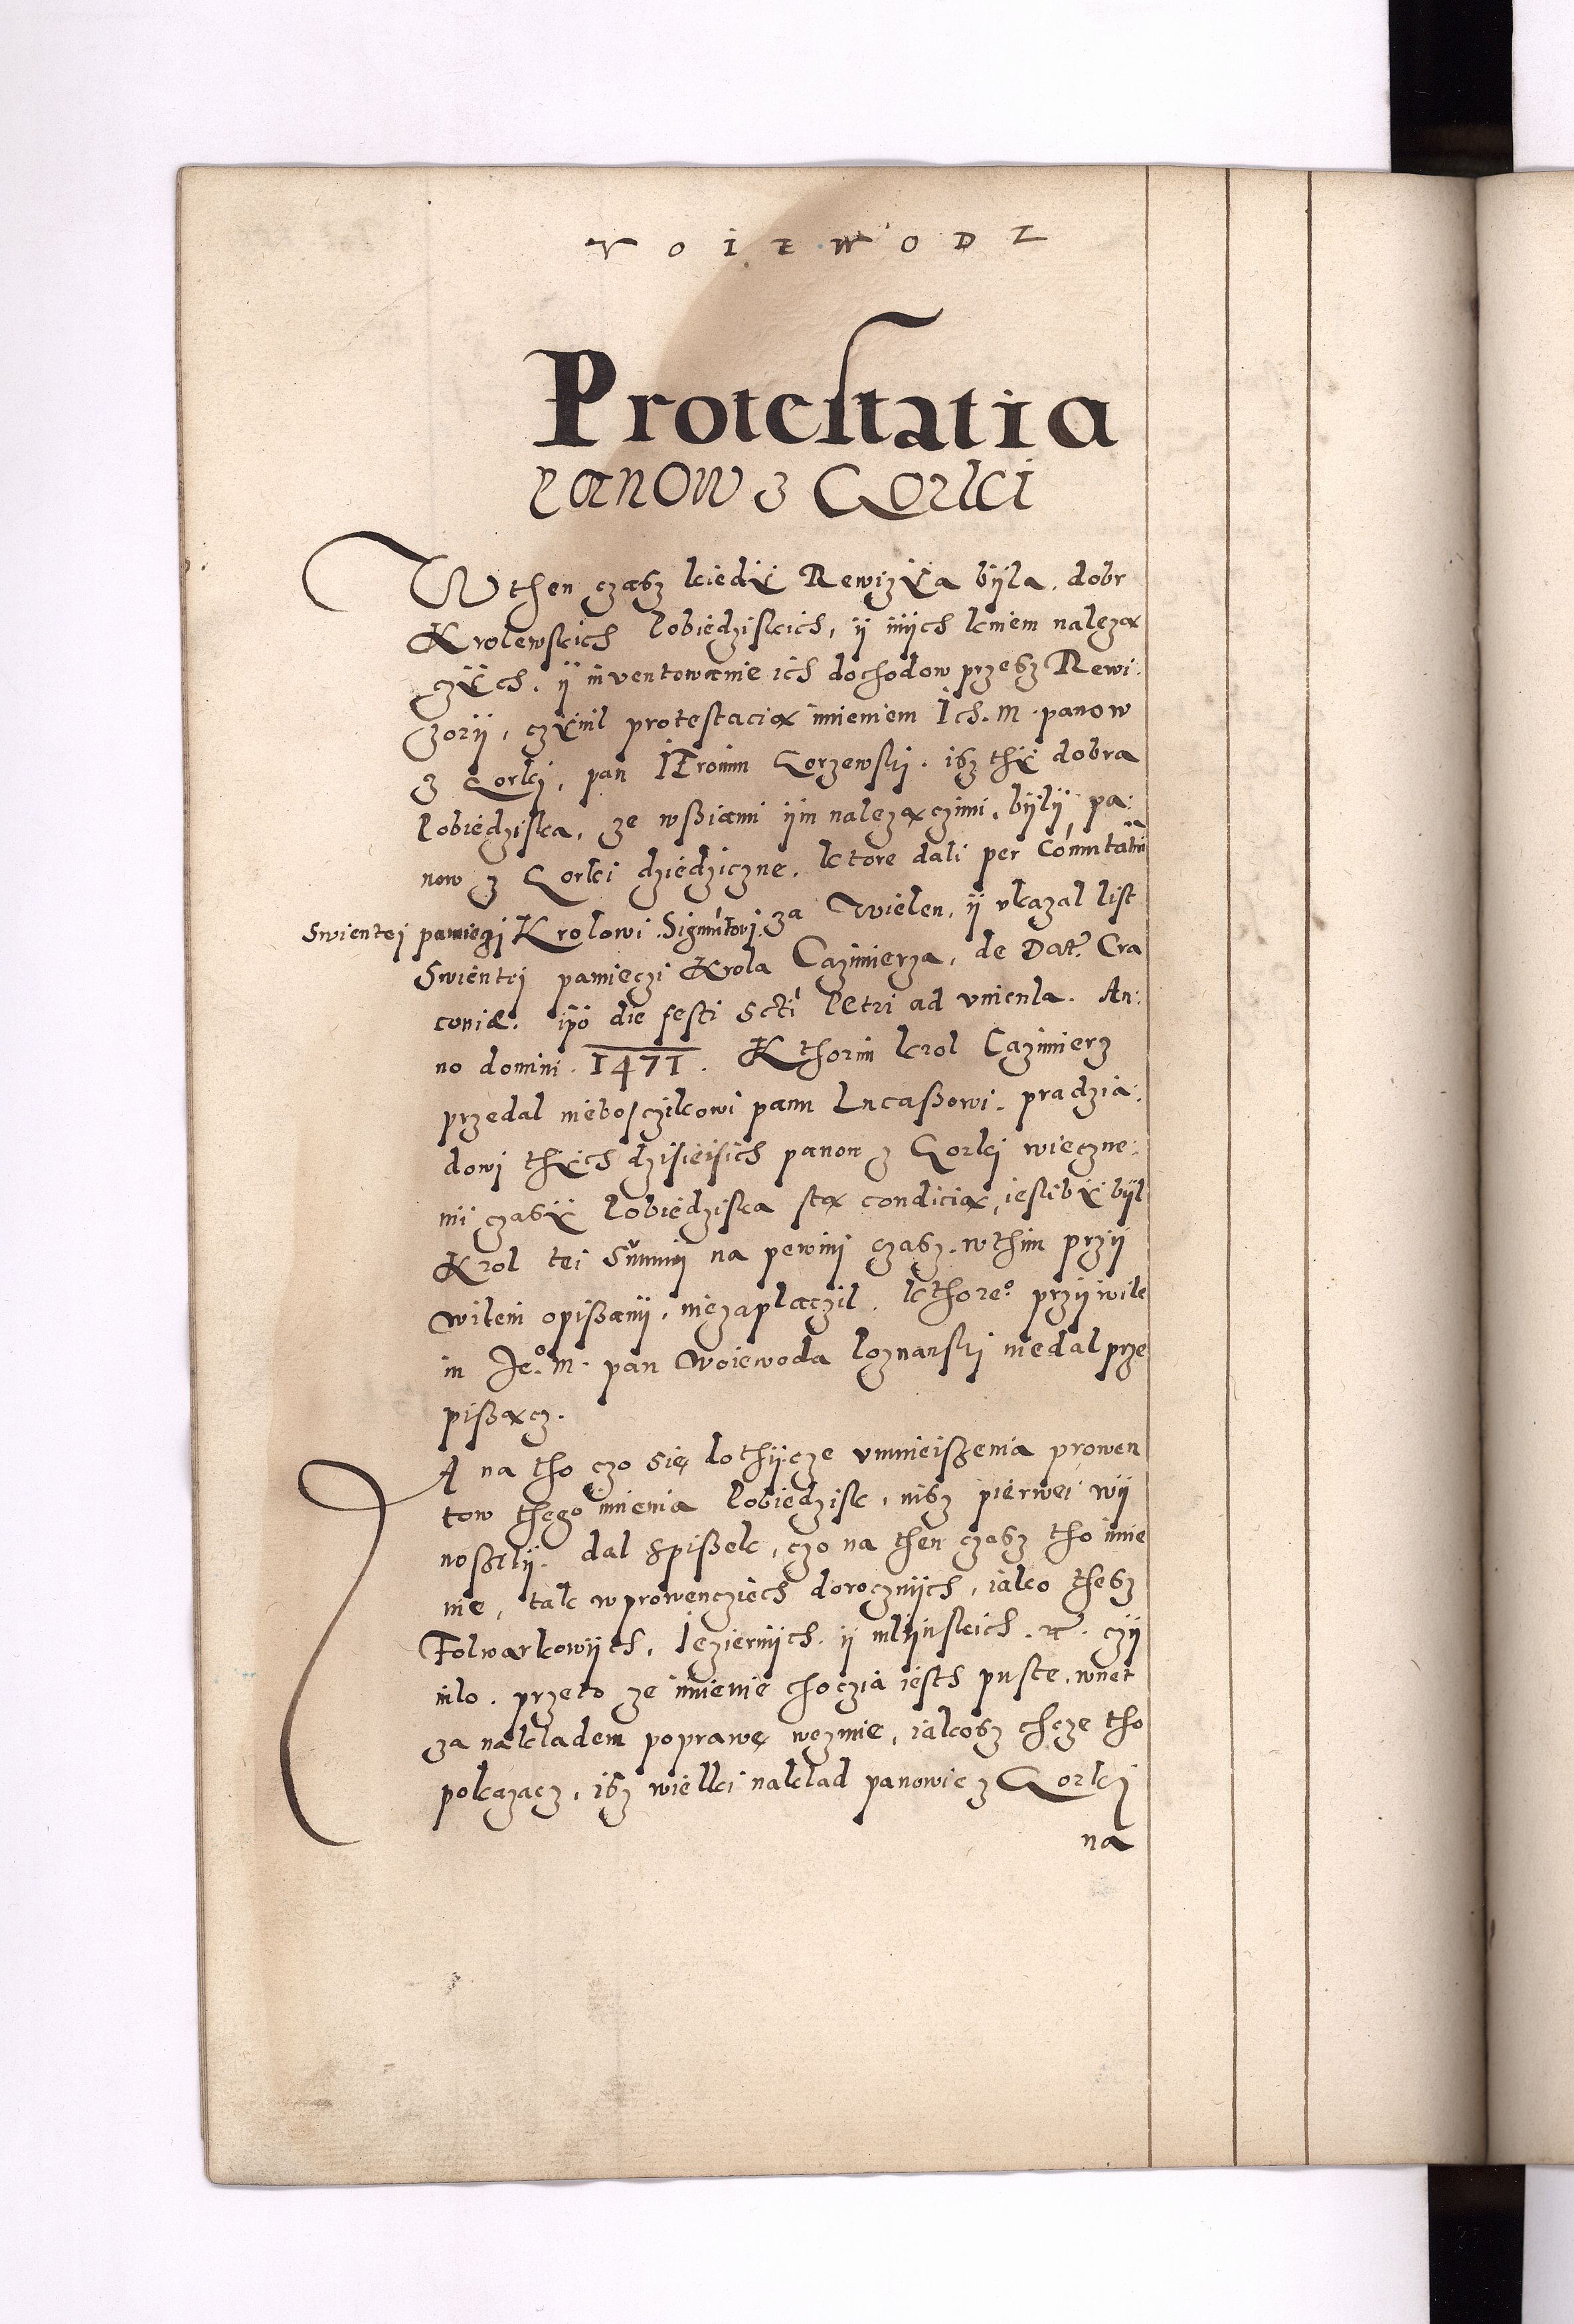 VOIEWODZ
Protestatia
PANOW z GORKI
Wthen czasz kiedÿ RewizÿA bÿla, dobr
Krolewskich Pobiedziskich, ÿ inÿch kniem nalezą
czÿch. ÿ inventowanie ich dochodow przesz Rewi:
zorÿ, czÿnil protestacią imieniem Ich. M. panow
z Gorki, pan IEronim Gorzewski. isz thÿ dobra
Pobiedziska, ze wsziami ÿm nalezączimi, bÿlÿ pa:
now z Gorki dziedziczne, ktore dali per Comutatū
Swientej pamięci Krolowi Sigmūtowi. za Wielen, ÿ vkazal list
Swientei pamieczi Krola Cazimierza, de Dat. Cra
coniæ. ipō die festi Scti Petri ad vincula. An:
no domini. 1471. Kthorim krol Cazimierz
przedal nieboszczikowi panu Lucaszowi, pradzia:
dowi thÿch dzisieisich panow z Gorki wieczne:
mi czasÿ Pobiedziska stą condicią, iesližbÿ bÿl
Krol tei Summi na pewni czasz. wthim przÿ
wileiu opiszanÿ, niezaplaczil. kthore° przÿwile
iu Je° M. pan Woiewoda Poznanski niedal prze
piszącz.
A na tho czo się dothÿcze vmnieiszenia prowen
tow thego imienia Pobiedzisk, nisz pierwei wÿ
noszelÿ. dal spiszek, czo na then czasz tho imie
nie, tak wprowencziech dorocznÿch, iako thesz
Folwarkowÿch, Jeziernÿch, ÿ mlÿnskich. etc. czÿ
nilo. przeto ze imienie choczia iesth puste, wnet
za nakladem poprawę wezmie, iakosz chcze tho
pokazacz, isz wielki naklad panowie z Gorki
na